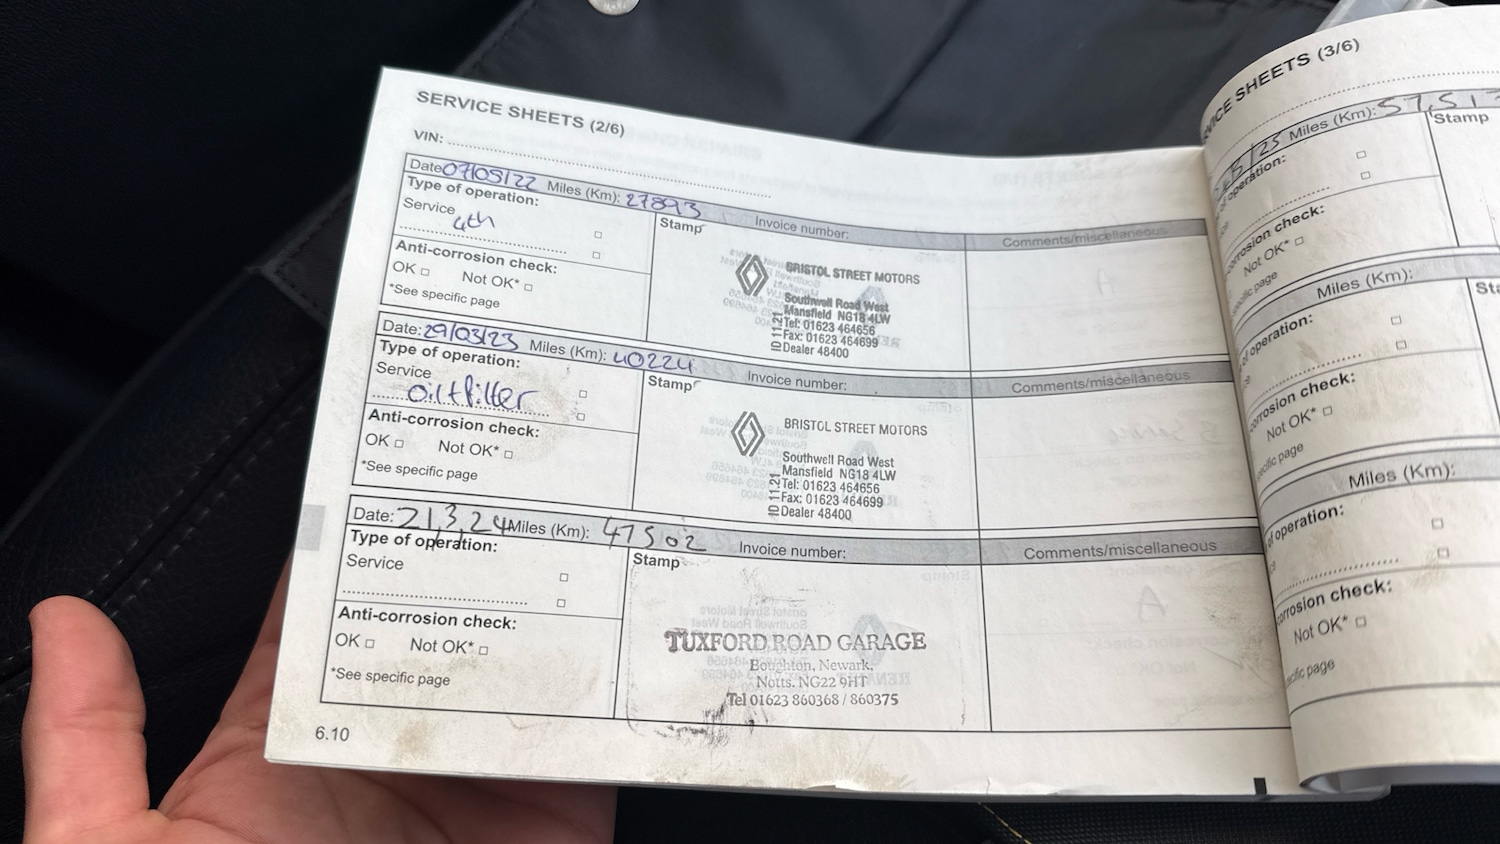 SERVICE SHEETS (2/6)
VIN:
Date: 07/05/22 Miles (Km): 27893 Invoice number: Comments/miscellaneous
Type of operation:
Service
4th
Stamp
Anti-corrosion check:
OK Not OK*
*See specific page
BRISTOL STREET MOTORS
Southwell Road West
Mansfield NG18 4LW
Tel: 01623 464656
Fax: 01623 464699
Dealer 48400
Date: 29/03/23 Miles (Km): 40224 Invoice number: Comments/miscellaneous
Type of operation:
Service
oil+filter
Stamp
Anti-corrosion check:
OK Not OK*
*See specific page
BRISTOL STREET MOTORS
Southwell Road West
Mansfield NG18 4LW
Tel: 01623 464656
Fax: 01623 464699
Dealer 48400
Date: 21,3,24 Miles (Km): 47502 Invoice number: Comments/miscellaneous
Type of operation:
Service
Stamp
Anti-corrosion check:
OK Not OK*
*See specific page
TUXFORD ROAD GARAGE
Boughton, Newark,
Notts. NG22 9HT
Tel 01623 860368 / 860375
6.10
SHEETS (3/6)
Miles (Km): 57,51
Stamp
operation:
check:
Not OK*
page
Miles (Km):
operation:
check:
Not OK*
page
Miles (Km):
operation:
check:
Not OK*
page